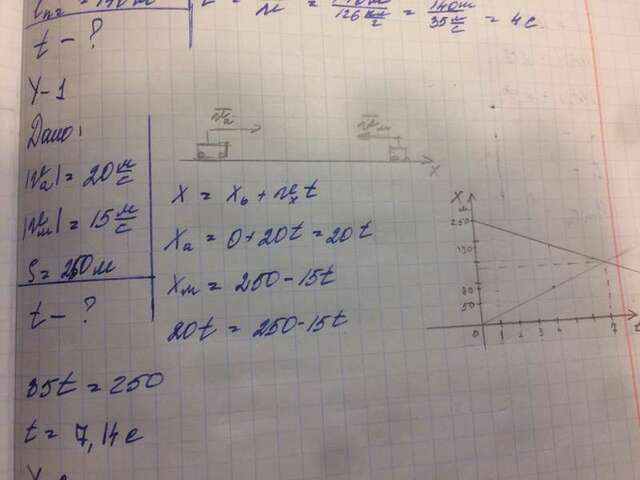 t - ?
140м
126 км/ч = 140м / 35 м/с = 4с
У-1
Дано:
|v⃗a| = 20 м/с
|v⃗м| = 15 м/с
S = 250м
t - ?
v⃗a
v⃗м
X
X = X₀ + vₓt
Xa = 0 + 20t = 20t
Xм = 250 - 15t
20t = 250 - 15t
35t = 250
t = 7,14с
X
250
50
0
1
2
3
4
7
t